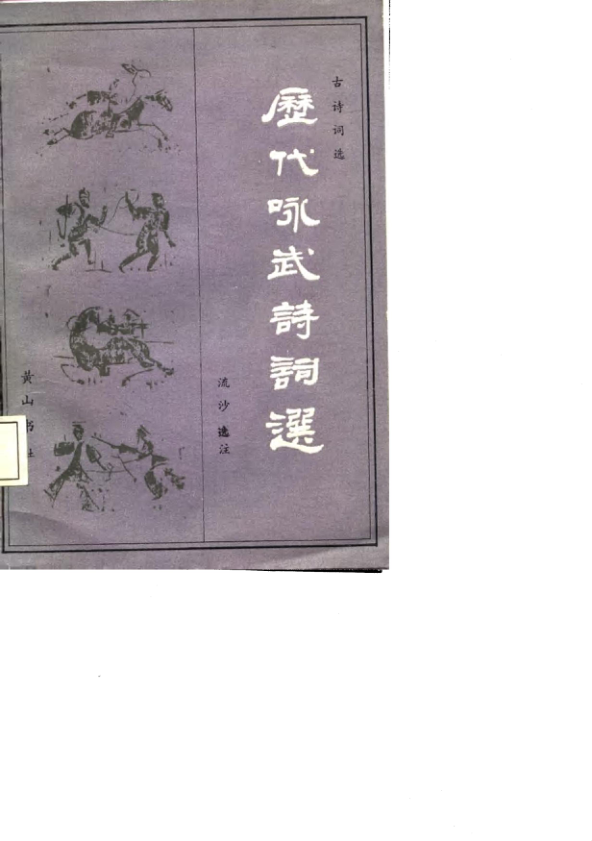 古诗词选
歷代咏武詩詞選
流沙 选注
黄山书社